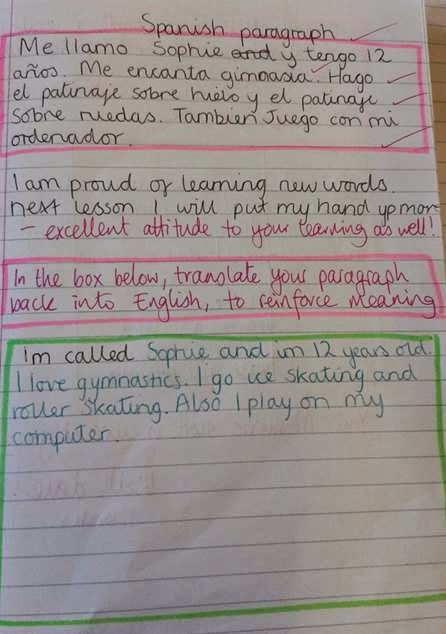 Spanish paragraph
Me llamo Sophie and y tengo 12
años. Me encanta gimnasia. Hago
el patinaje sobre hielo y el patinaje
sobre ruedas. Tambien Juego con mi
ordenador.
I am proud of learning new words.
next lesson I will put my hand up more
- excellent attitude to your learning as well!
In the box below, translate your paragraph
back into English, to reinforce meaning.
im called Sophie and im 12 years old.
I love gymnastics. I go ice skating and
roller skating. Also I play on my
computer.